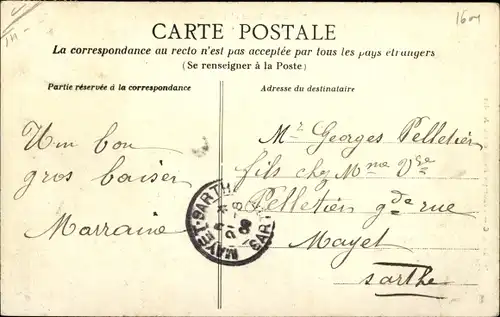 CARTE POSTALE
La correspondance au recto n'est pas acceptée par tous les pays étrangers
(Se renseigner à la Poste)
Partie réservée à la correspondance
Adresse du destinataire
Un bon
gros baiser
Marraine
Mr Georges Pelletier
fils chez Mme Vve
Pelletier gde rue
Mayet
Sarthe
MAYET SARTHE